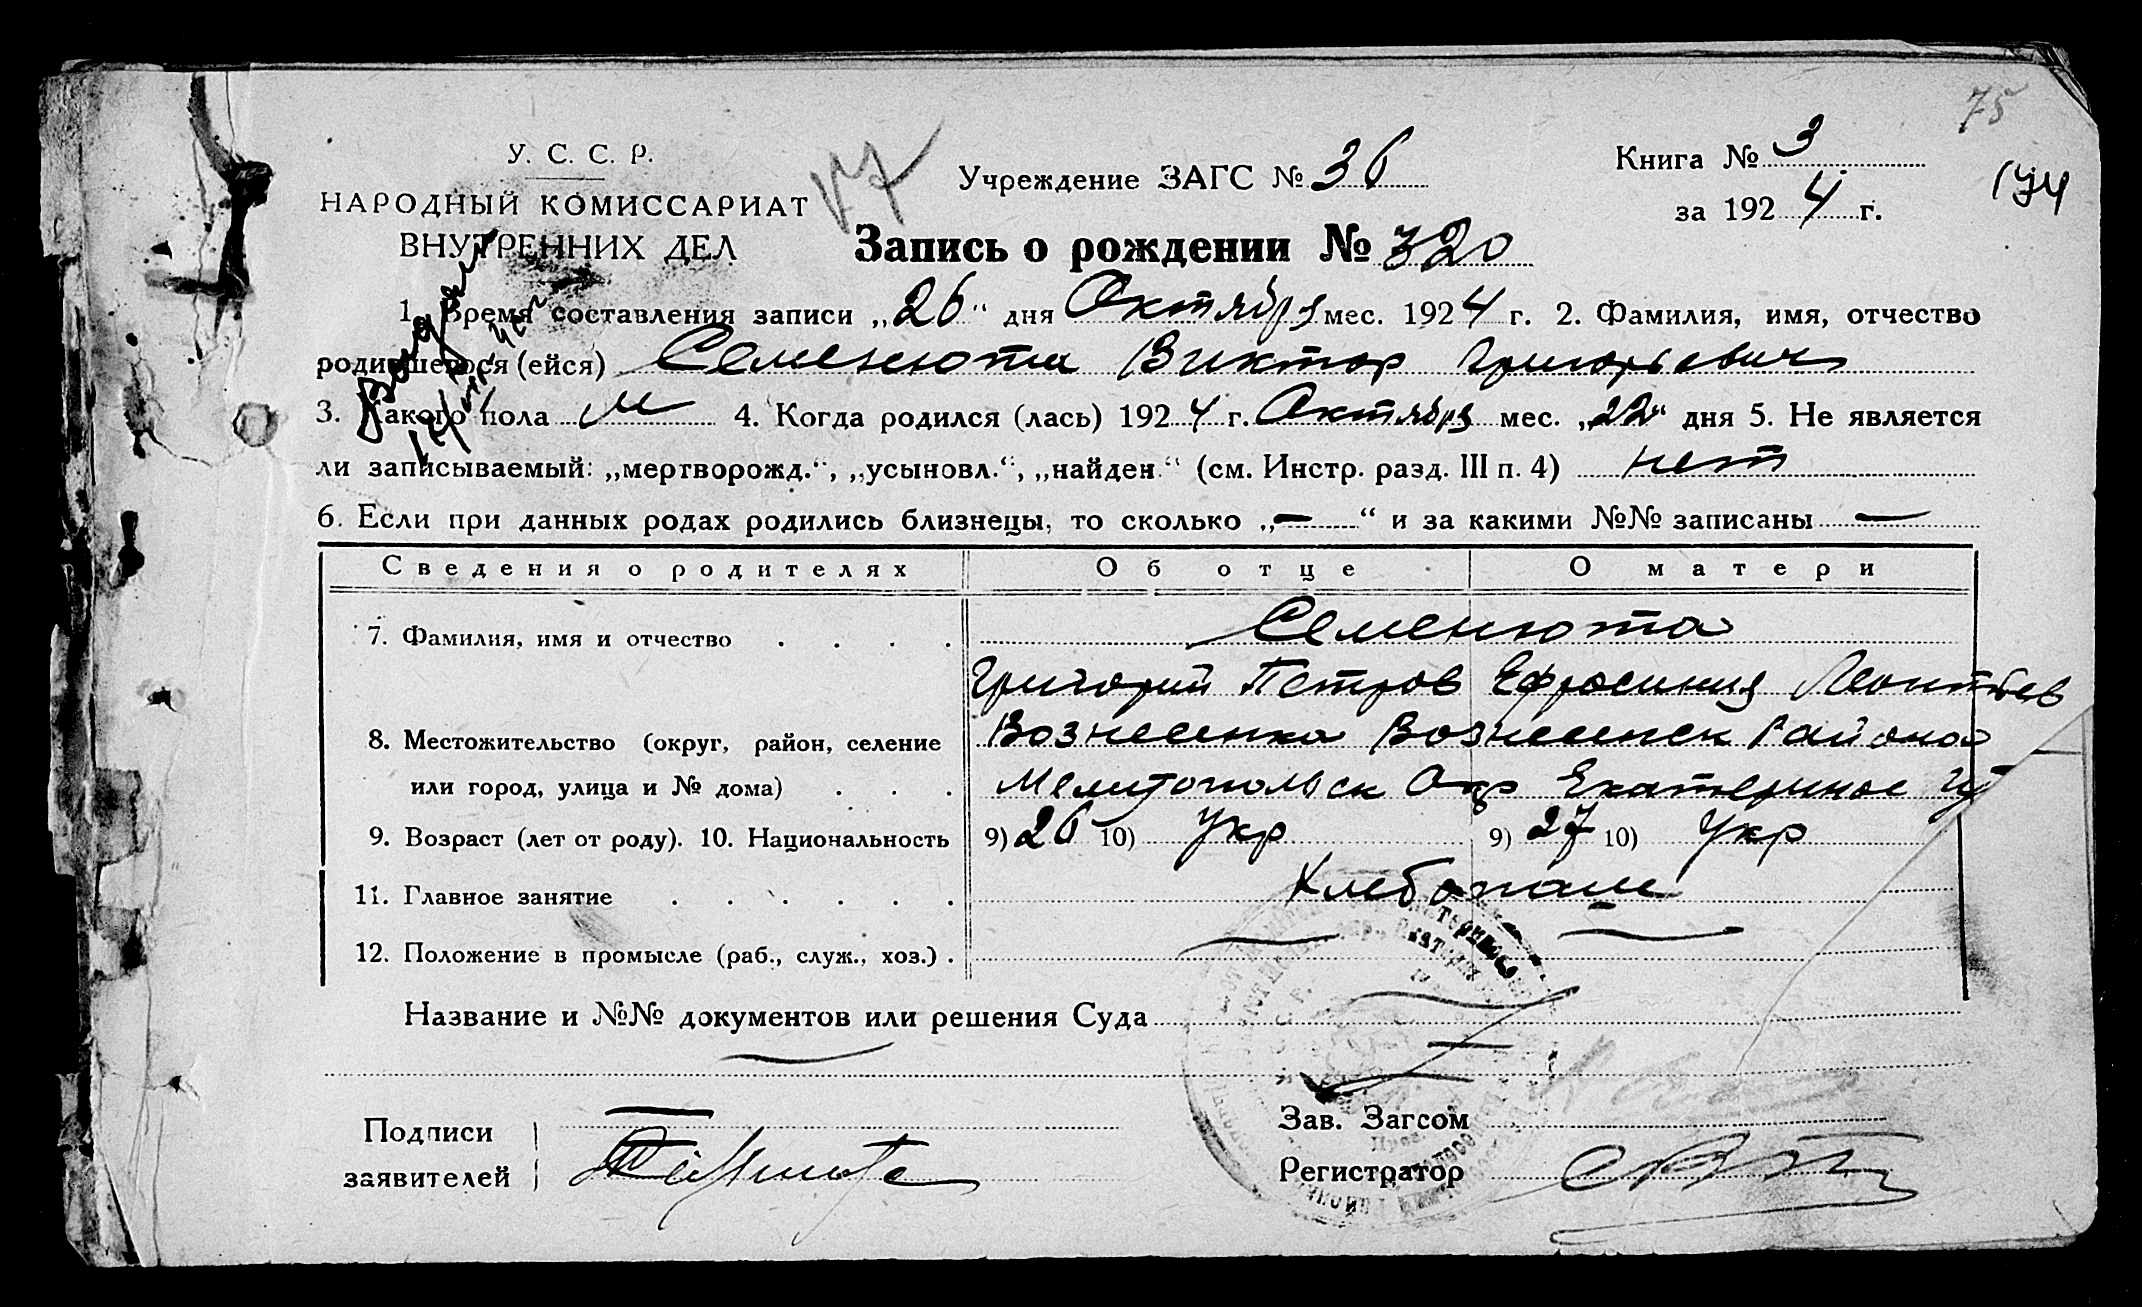 75
У. С. С. Р.
НАРОДНЫЙ КОМИССАРИАТ
ВНУТРЕННИХ ДЕЛ
Учреждение ЗАГС № 36
Книга № 3
за 1924 г.
174
Запись о рождении № 320
1. Время составления записи „26“ дня Октября мес. 1924 г. 2. Фамилия, имя, отчество
родившегося (ейся) Семенюта Виктор Григорьевич
3. Какого пола М 4. Когда родился (лась) 1924 г. Октября мес. „22“ дня 5. Не является
ли записываемый: „мертворожд.“, „усыновл.“, „найден.“ (см. Инстр. разд. III п. 4) нет
6. Если при данных родах родились близнецы, то сколько „—“ и за какими №№ записаны —
Сведения о родителях Об отце О матери
7. Фамилия, имя и отчество . . . . Семенюта
Григорий Петров Ефросиния Леонтьев
8. Местожительство (округ, район, селение Вознесенка Вознесенск Района
или город, улица и № дома) . . . Мелитопольск Окр Екатеринос
9. Возраст (лет от роду). 10. Национальность 9) 26 10) Укр 9) 27 10) Укр
11. Главное занятие . . . . . . Хлебопаш
12. Положение в промысле (раб., служ., хоз.) . — —
Название и №№ документов или решения Суда
Подписи
заявителей
Зав. Загсом
Регистратор